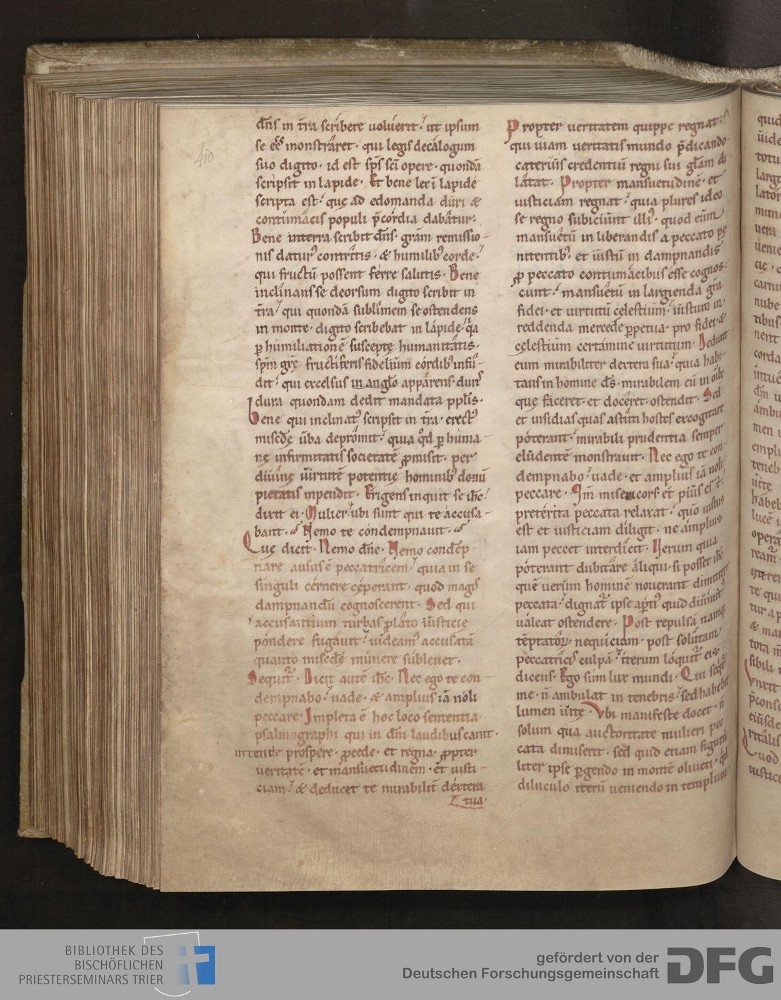 410
dn̄s in tr̄a scribere uoluerit. ut ipsum
se ee̅ monstraret. qui legis decalogum
suo digito. id est sp̄s sc̄i opere. quondā
scripsit in lapide. Et bene lex ī lapide
scripta est. que ad edomanda duri &
contumacis populi p̄cordia dabatur.
Bene interra scribit dn̄s. gr̄am remissio
nis daturꝰ contritis. & humilibꝰ corde.
qui fructū possent ferre salutis. Bene
inclinans se deorsum digito scribit in
tr̄a. qui quondā sublimem se ostendens
in monte. digito scribebat in lapide. q̄a
ꝑ humilitationē susceptę humanitatis.
sp̄m grę fructiferis fidelium cordibꝰ infū
dit. qui excelsus in anglo apparens. duris
dura quondam dedit mandata pplis.
bene qui inclinatꝰ scripsit in tr̄a. erectꝰ
misedę ūba depromit. quia qd̄ ꝑ huma
nę infirmitatis societatē ꝓmisit. per
diuinę uirtutē potentię hominibꝰ donū
pietatis inpendit. Erigens inquit se ih̄c.
dixit ei. Mulier. ubi sunt qui te accusa
bant. Nemo te condempnauit.
Quę dicit. Nemo dn̄e. Nemo condēp
nare ausus ē peccatricem. quia in se
singuli cernere ceperant. quod magis
dampnandū cognoscerent. Sed qui
accusantium turbas ꝓlato iusticię
pondere fugauit. uideamꝰ accusatā
quanto misedę munere subleuet.
Sequit̄. Dicit autē ih̄c. Nec ego te con
dempnabo. uade. & amplius iā noli
peccare. Impleta ē hoc loco sententia
psalmographi qui in dn̄i laudibus canit.
intende prospere. ꝓcede. et regna. ꝓpter
ueritatē. et mansuetudinem. et iusti
ciam. & deducet te mirabilit̄ dextera
tua.
Propter ueritatem quippe regnat.
qui uiam ueritatis mundo p̄dicando
cateruis credentiū regni sui glām di
latat. Propter mansuetudinē. et
iusticiam regnat. quia plures ideo
se regno subiciunt illiꝰ. quod eum
mansuetū in liberandis a peccato pę
nitentibꝰ. et iustū in dampnandis
ꝓ peccato contumacibus esse cognos
cunt. mansuetū in largienda gr̄a
fidei. et uirtutū celestium. iustum in
reddenda mercede ꝑpetua. pro fidei. &
celestium certamine uirtutum. Deduxit
eum mirabiliter dextera sua. quia habi
tans in homine ds̄. mirabilem eū in oīb
que faceret. et doceret. ostendit. Sed
et insidias quas astuti hostes excogitare
poterant. mirabili prudentia semper
eludentē monstrauit. Nec ego te con
dempnabo. uade. et amplius iā noli
peccare. Qm̄ misericors et pius est.
preterita peccata relaxat. quō iustus
est et iusticiam diligit. ne amplius
iam peccet interdicit. Uerum quia
poterant dubitare aliqui. si posset ih̄c
quē uerum hominē nouerant dimittere
peccata. dignat̄ ipse aptiꝰ quid diuinit
ualeat ostendere. Post repulsā namq
tēptatorꝝ nequiciam. post solutam
peccatricis culpā. iterum loquit̄ eis
dicens. Ego sum lux mundi. Qui seqt̄
me. ñ ambulat in tenebris. sed habebit
lumen uitę. Ubi manifeste docet. ñ
solum qua auctoritate mulieri pec
cata dimiserit. sed quid etiam figura
liter ipse pergendo in montē oliueti. qd
diluculo iterū ueniendo in templum
BIBLIOTHEK DES
BISCHÖFLICHEN
PRIESTERSEMINARS TRIER
gefördert von der
Deutschen Forschungsgemeinschaft
DFG